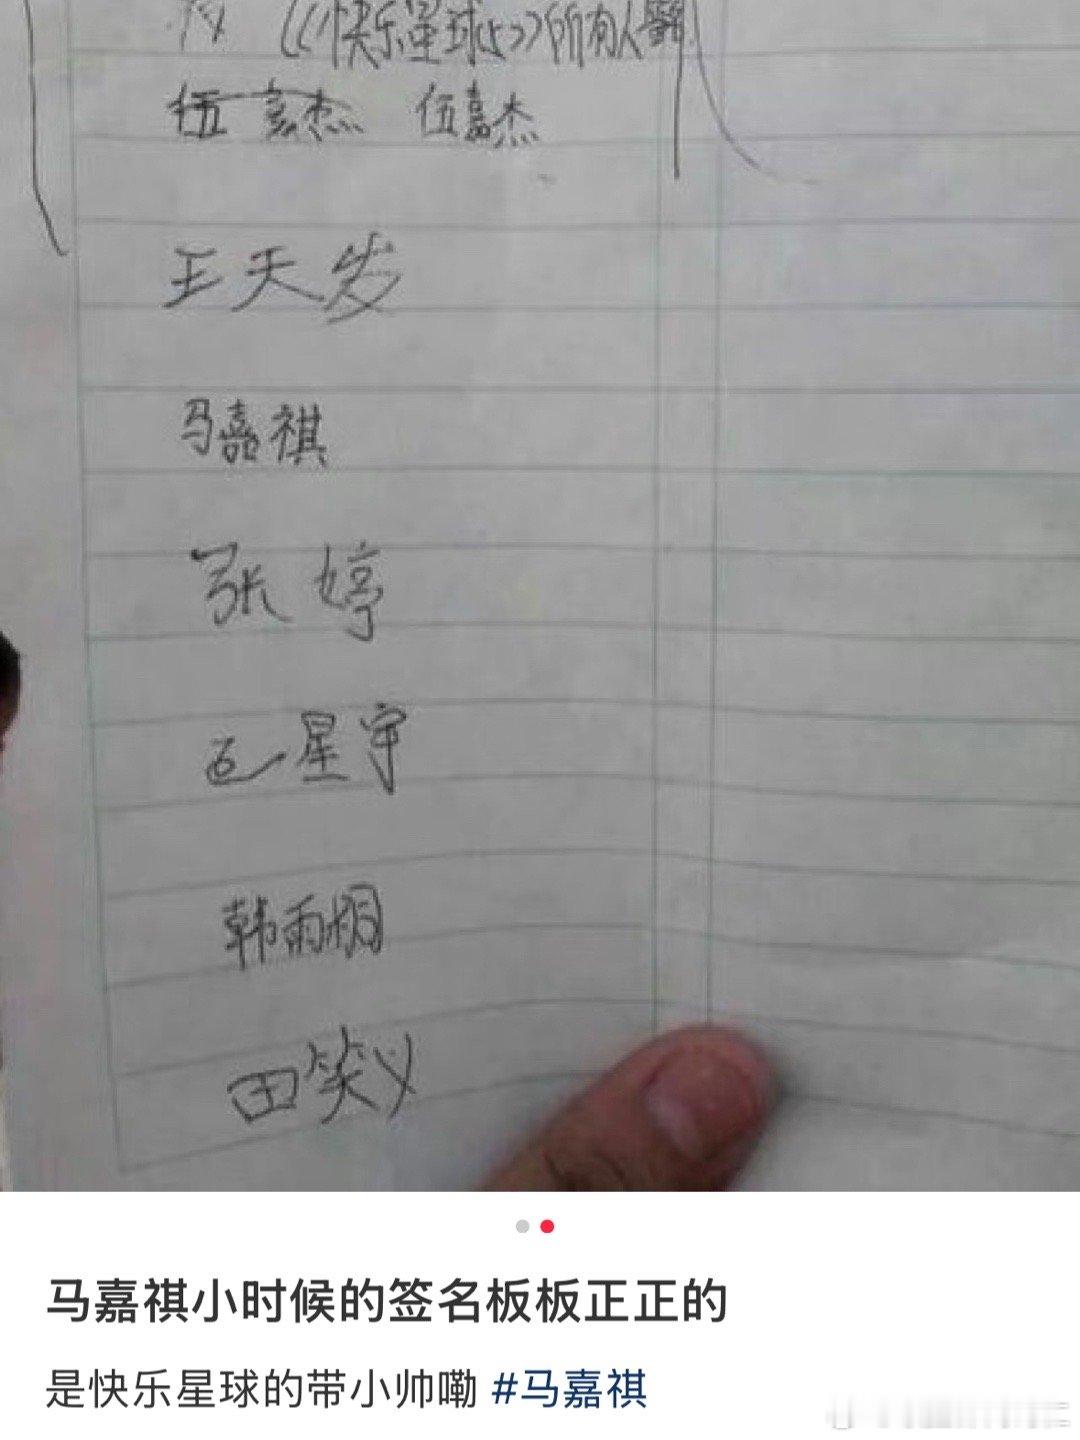 《《快乐星球5》》所有人
伍嘉杰 伍嘉杰
王天岁
马嘉祺
张婷
星宇
韩雨桐
田笑义
马嘉祺小时候的签名板板正正的
是快乐星球的带小帅嘞 #马嘉祺